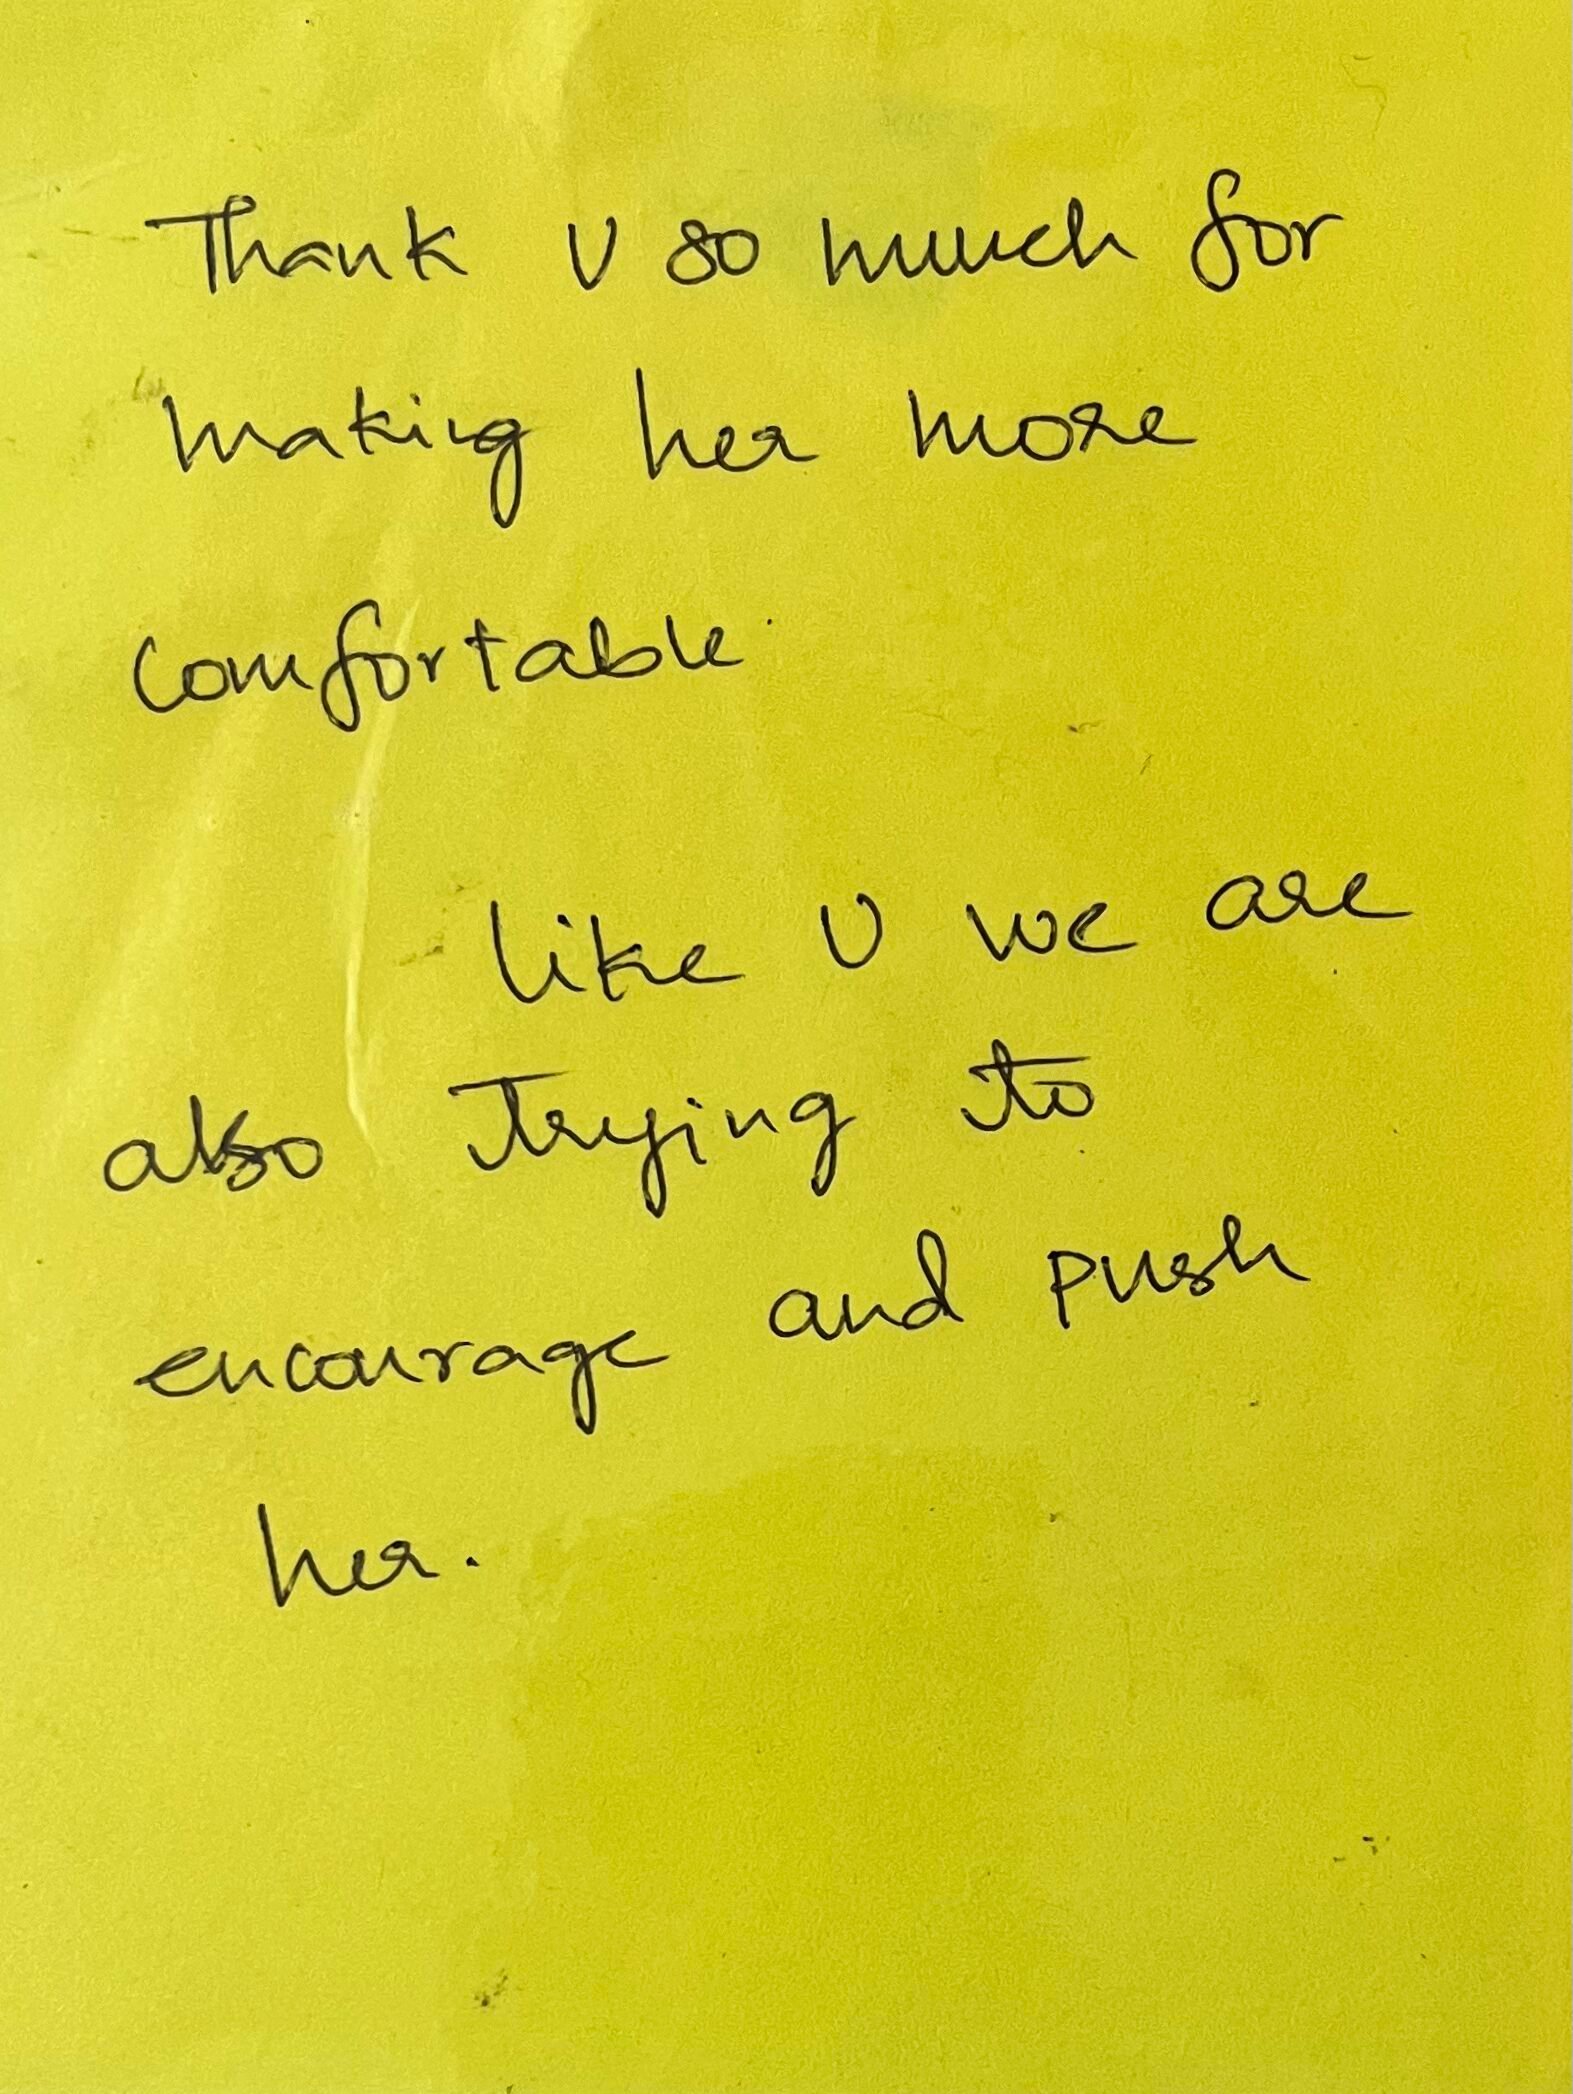 Thank U so much for
making her more
comfortable.
like U we are
also trying to
encourage and push
her.